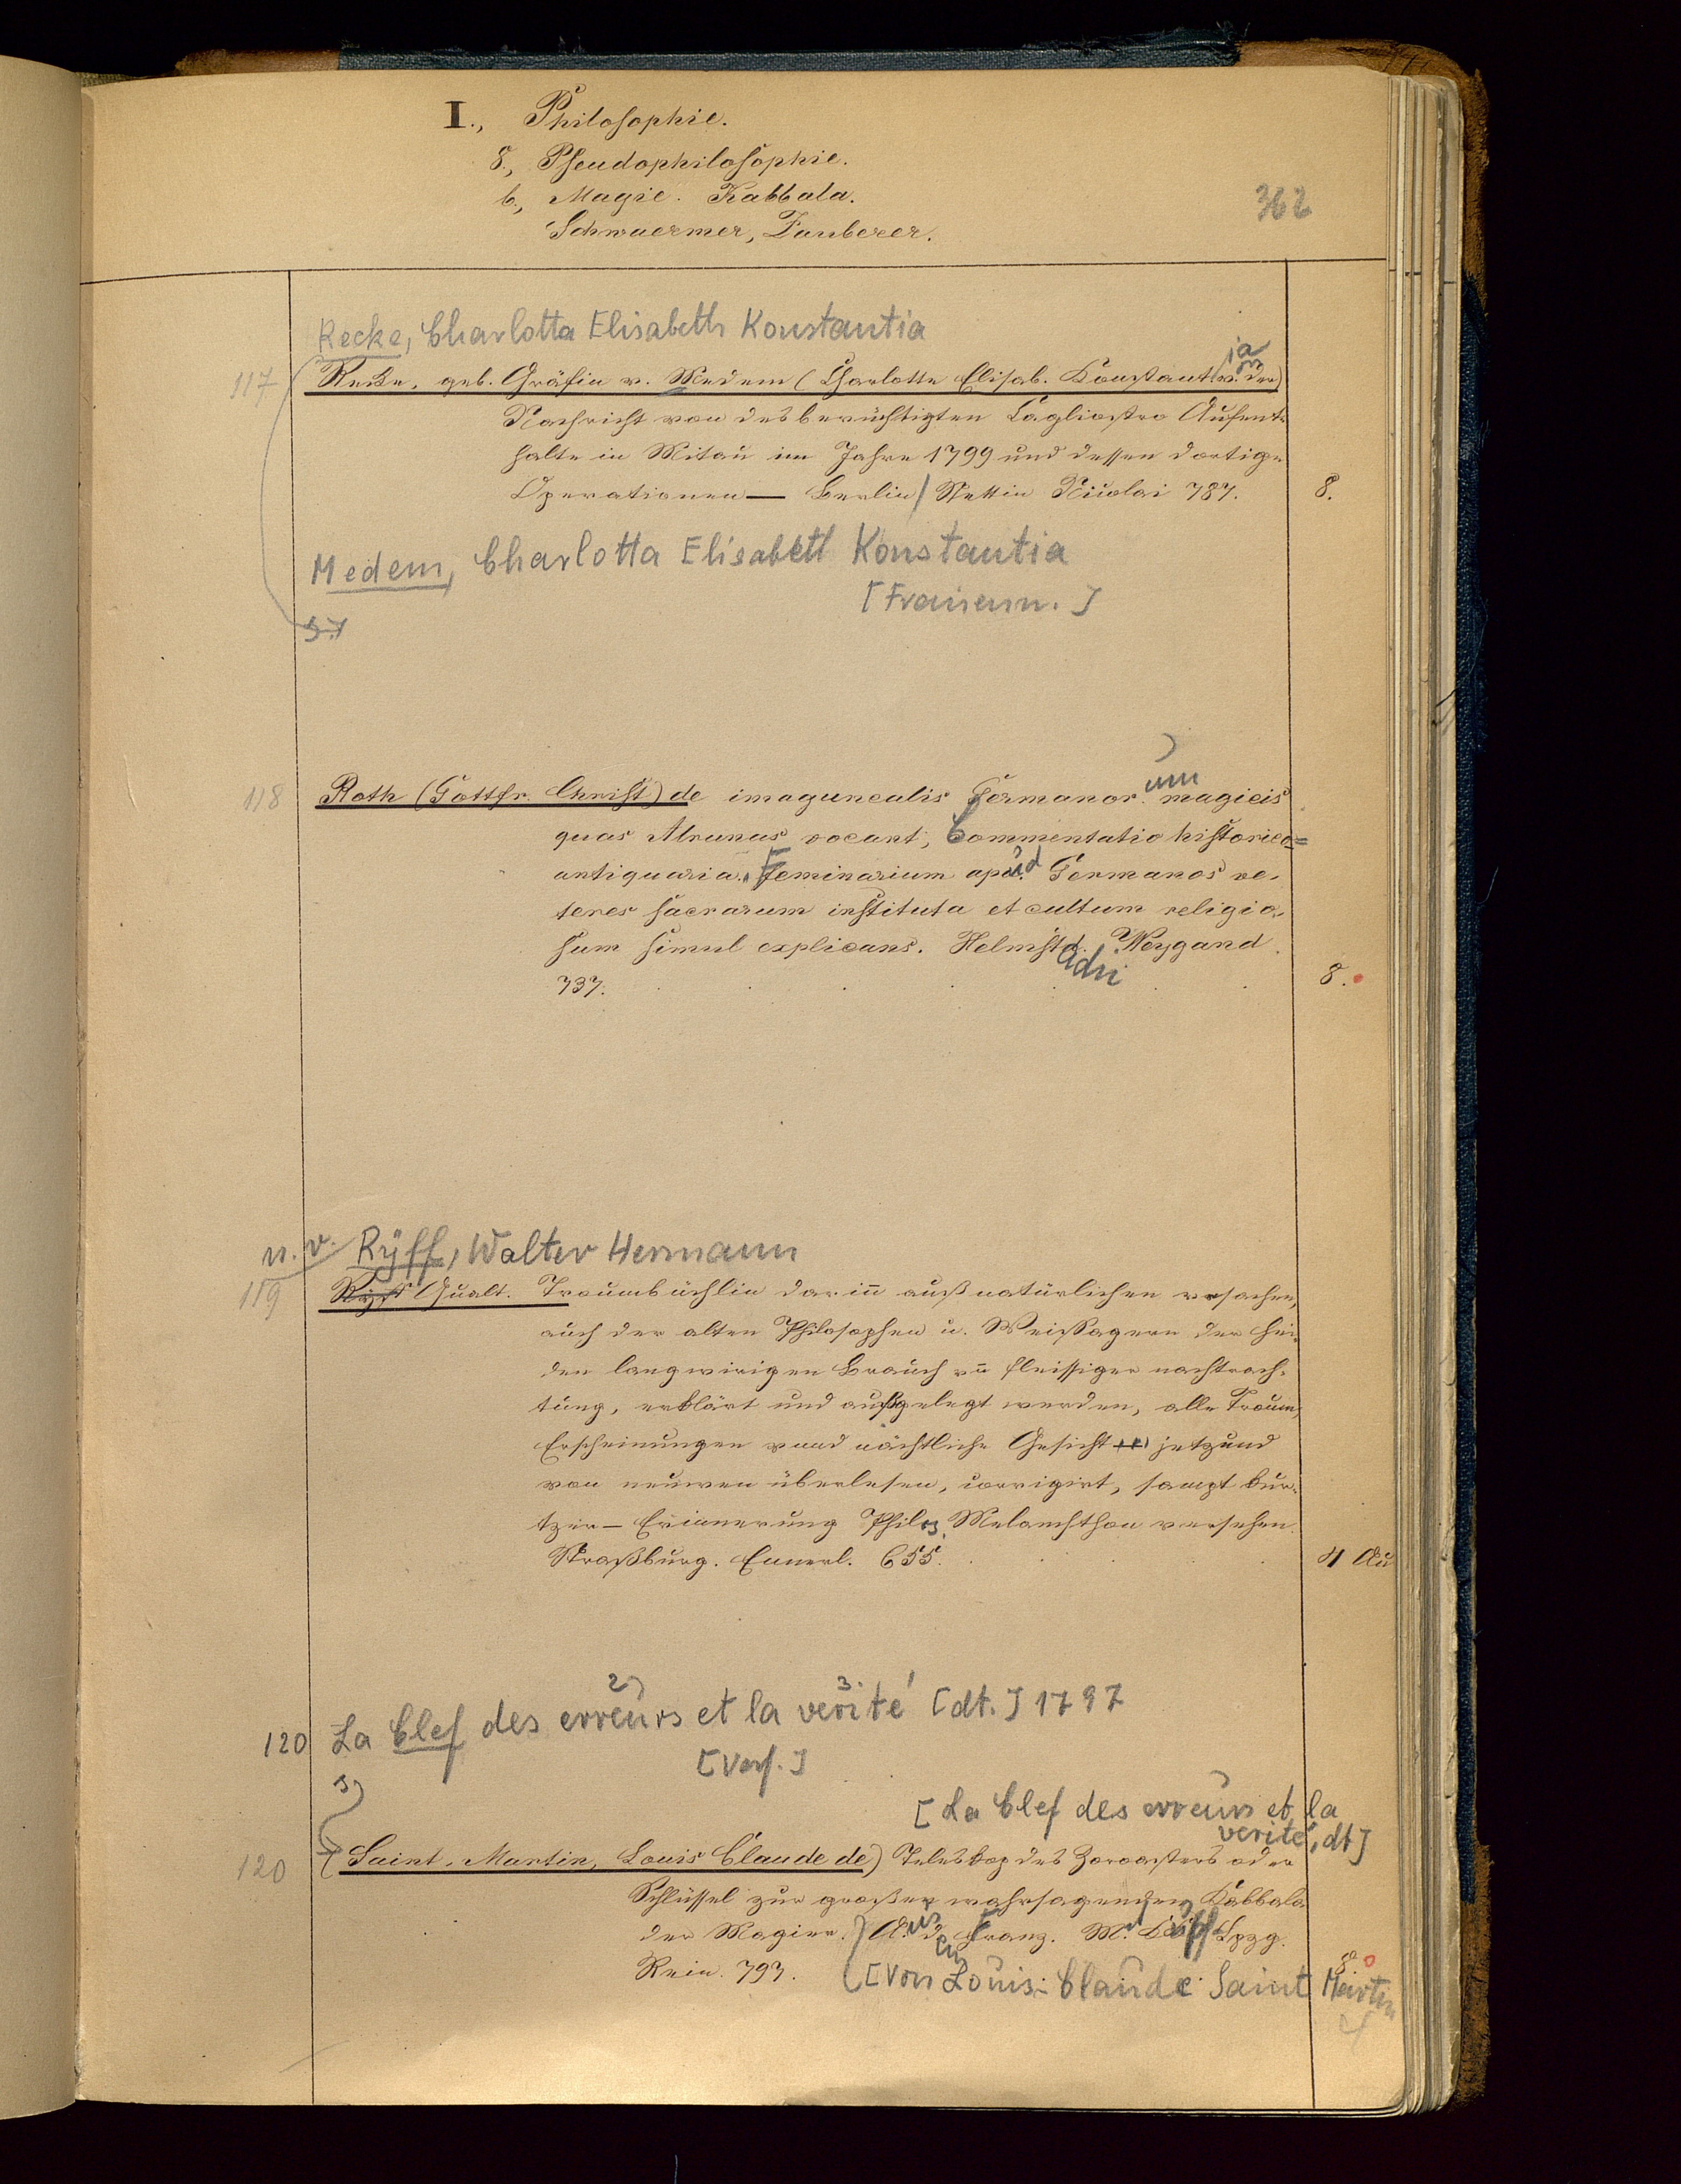 I., Philosophie.
8., Pseudophilosophie.
b., Magie. Kabbala.
362
Schwaermer, Zauberer.
Recke, Charlotta Elisabeth Konstantia
ia
117 Recke, geb. Gräfin v. Medem (Charlotte Elisab. Constant. v. der)
Nachricht von des berüchtigten Cagliostro Aufent-
halte in Mitau im Jahre 1799 und dessen dortige
Operationen — Berlin / Stettin Nicolai 787. 8.
Medem, Charlotta Elisabeth Konstantia
[Frauenn.]
um
118 Roth (Gottfr. Christ) de imagunculis Germanor. magicis
quas Alrunas vocant, Commentatio historico=
antiquaria. Feminarum apud Germanos ve-
teres sacrarum instituta et cultum religio-
sum simul explicans. Helmstd. Weygand.
adii
737. 8.
n. v. Rÿff, Walter Hermann
119 Ryff Gualt. Traumbüchlin darin̄ auß natürlichen vrsachen,
auch der alten Philosophen u. Weissagern der Hei-
den langwirigen Brauch vn̄ fleissiger nachtrach-
tung, erklärt und außgelegt werden, alle Träum,
Erscheinungen vnnd nächtliche Gesicht jetzund
von neuwen überlesen, corrigirt, sampt kur-
tzer Erinnerung Philip. Melanchthon versehen
Straßburg. Emmerl. 655. 4
2) 3.
120 La Clef des erreurs et la verité [dt.] 1797
[Verf.]
[La Clef des erreurs et la
verité, dt]
120 (Saint-Martin, Louis Claude de) Teleskop des Zoroasters oder
Schlüssel zur großen wahrsagenden Kabbala
der Magier. Aus d. Franz. M. Lpzg.
Rein. 797. 8.
[Von Louis-Claude Saint Martin